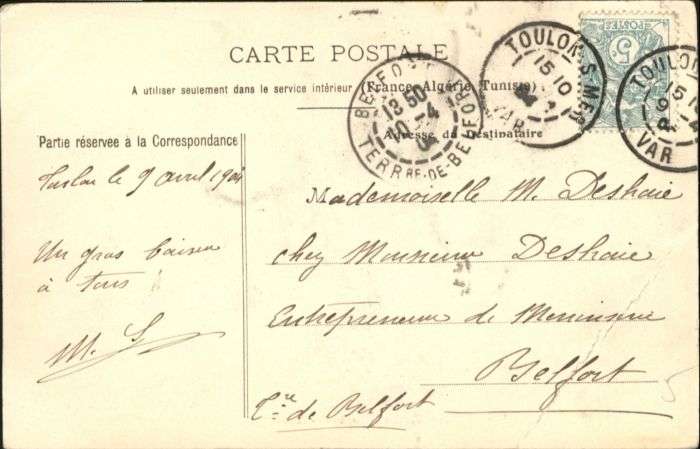 CARTE POSTALE
A utiliser seulement dans le service intérieur (France, Algérie, Tunisie)
POSTES
5
TOULON-S-MER
15 10
VAR
TOULON
15
9
VAR
BELFORT
18 50
-4
04
TERR RE-DE-BELFORT
Partie réservée à la Correspondance
Adresse du destinataire
Toulon le 9 avril 1904
Un gros baiser
à tous
M. S
Mademoiselle M. Deshaie
chez Monsieur Deshaie
Entrepreneur de Menuiserie
Belfort
Tre de Belfort